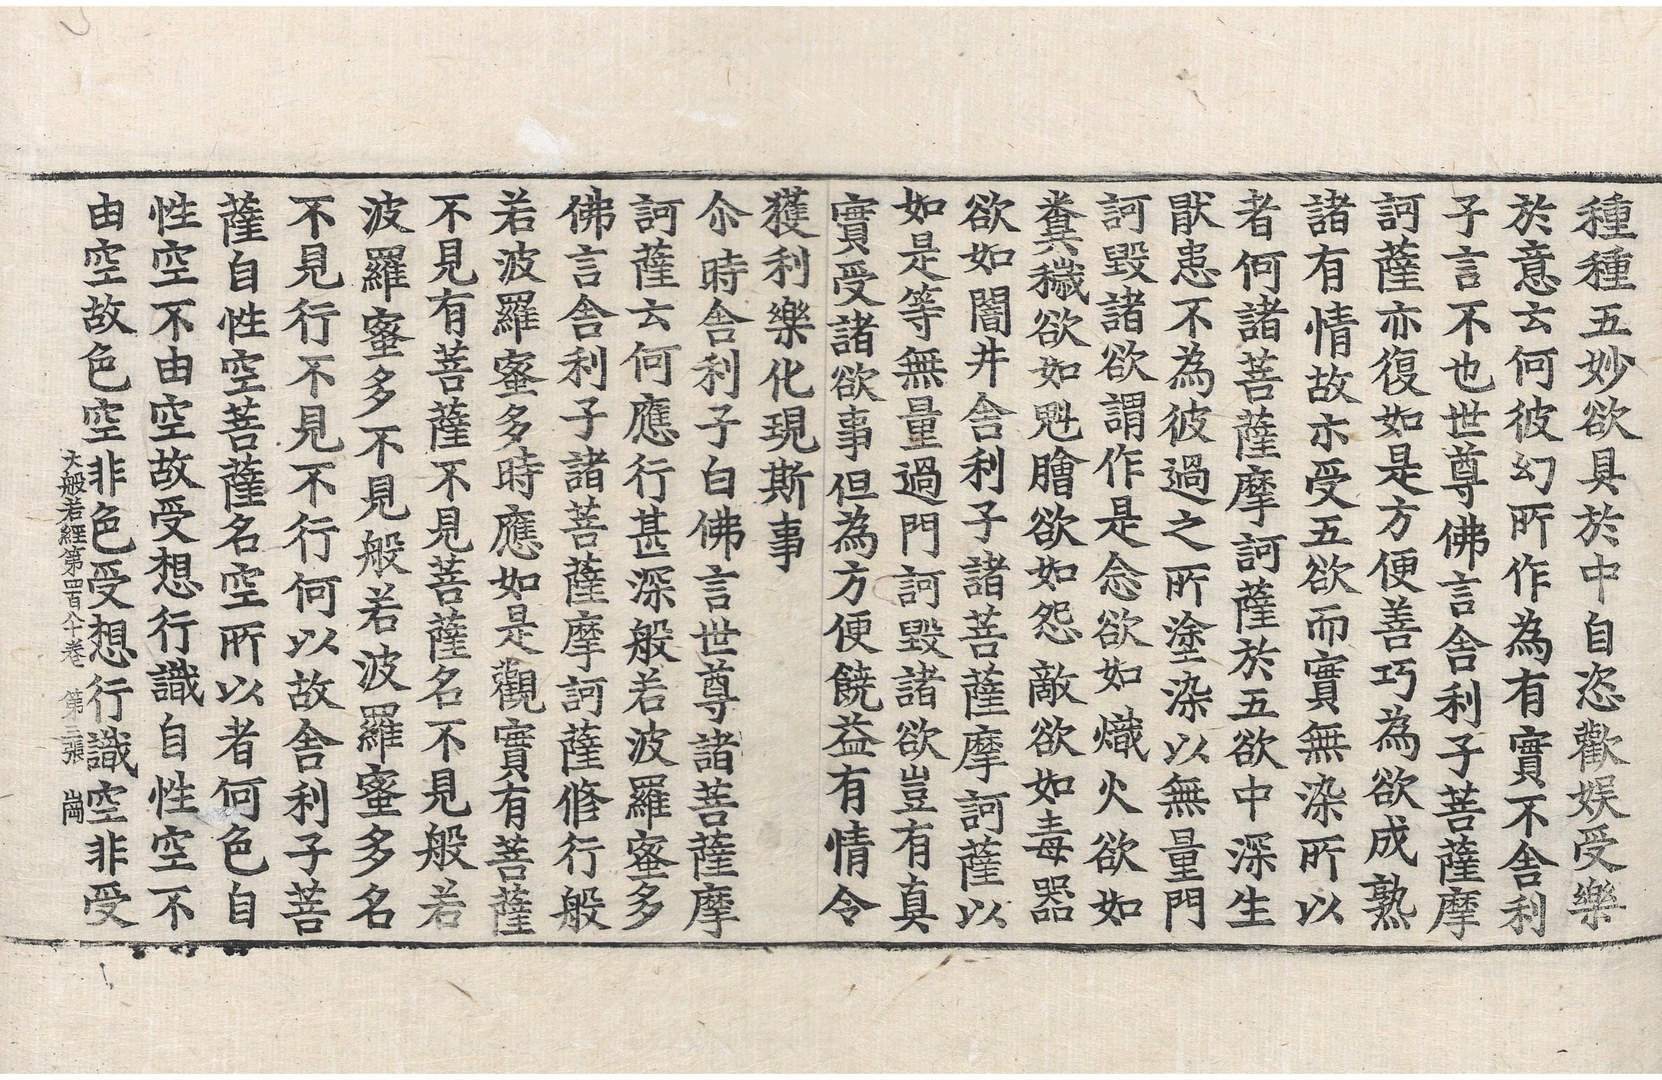 種種五妙欲具於中自恣歡娛受樂
於意云何彼幻所作為有實不舍利
子言不也世尊佛言舍利子菩薩摩
訶薩亦復如是方便善巧為欲成熟
諸有情故亦受五欲而實無染所以
者何諸菩薩摩訶薩於五欲中深生
猒患不為彼過之所塗染以無量門
訶毀諸欲謂作是念欲如熾火欲如
糞穢欲如魁膾欲如怨敵欲如毒器
欲如闇井舍利子諸菩薩摩訶薩以
如是等無量過門訶毀諸欲豈有真
實受諸欲事但為方便饒益有情令
獲利樂化現斯事
尒時舍利子白佛言世尊諸菩薩摩
訶薩云何應行甚深般若波羅蜜多
佛言舍利子諸菩薩摩訶薩修行般
若波羅蜜多時應如是觀實有菩薩
不見有菩薩不見菩薩名不見般若
波羅蜜多不見般若波羅蜜多名
不見行不見不行何以故舍利子菩
薩自性空菩薩名空所以者何色自
性空不由空故受想行識自性空不
由空故色空非色受想行識空非受
大般若經第四百二卷 第三張 崗